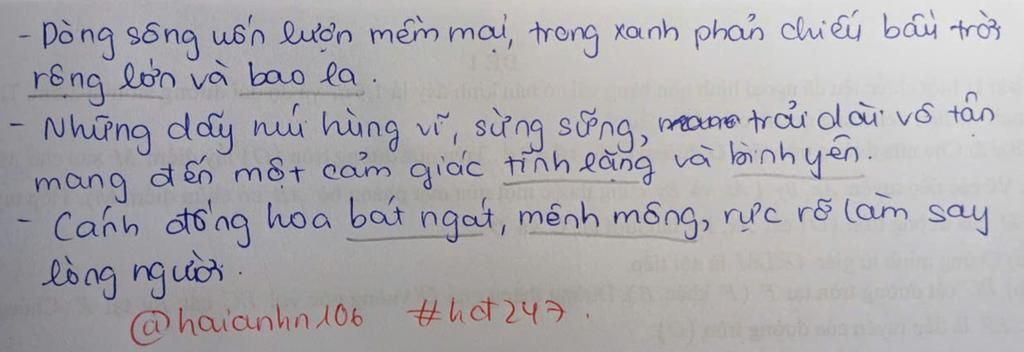 - Dòng sông uốn lượn mềm mại, trong xanh phản chiếu bầu trời
rộng lớn và bao la.
- Những dãy núi hùng vĩ, sừng sững, trải dài vô tận
mang đến một cảm giác tĩnh lặng và bình yên
- Cánh đồng hoa bát ngát, mênh mông, rực rỡ làm say
lòng người.
@haianhn106 #hot247.